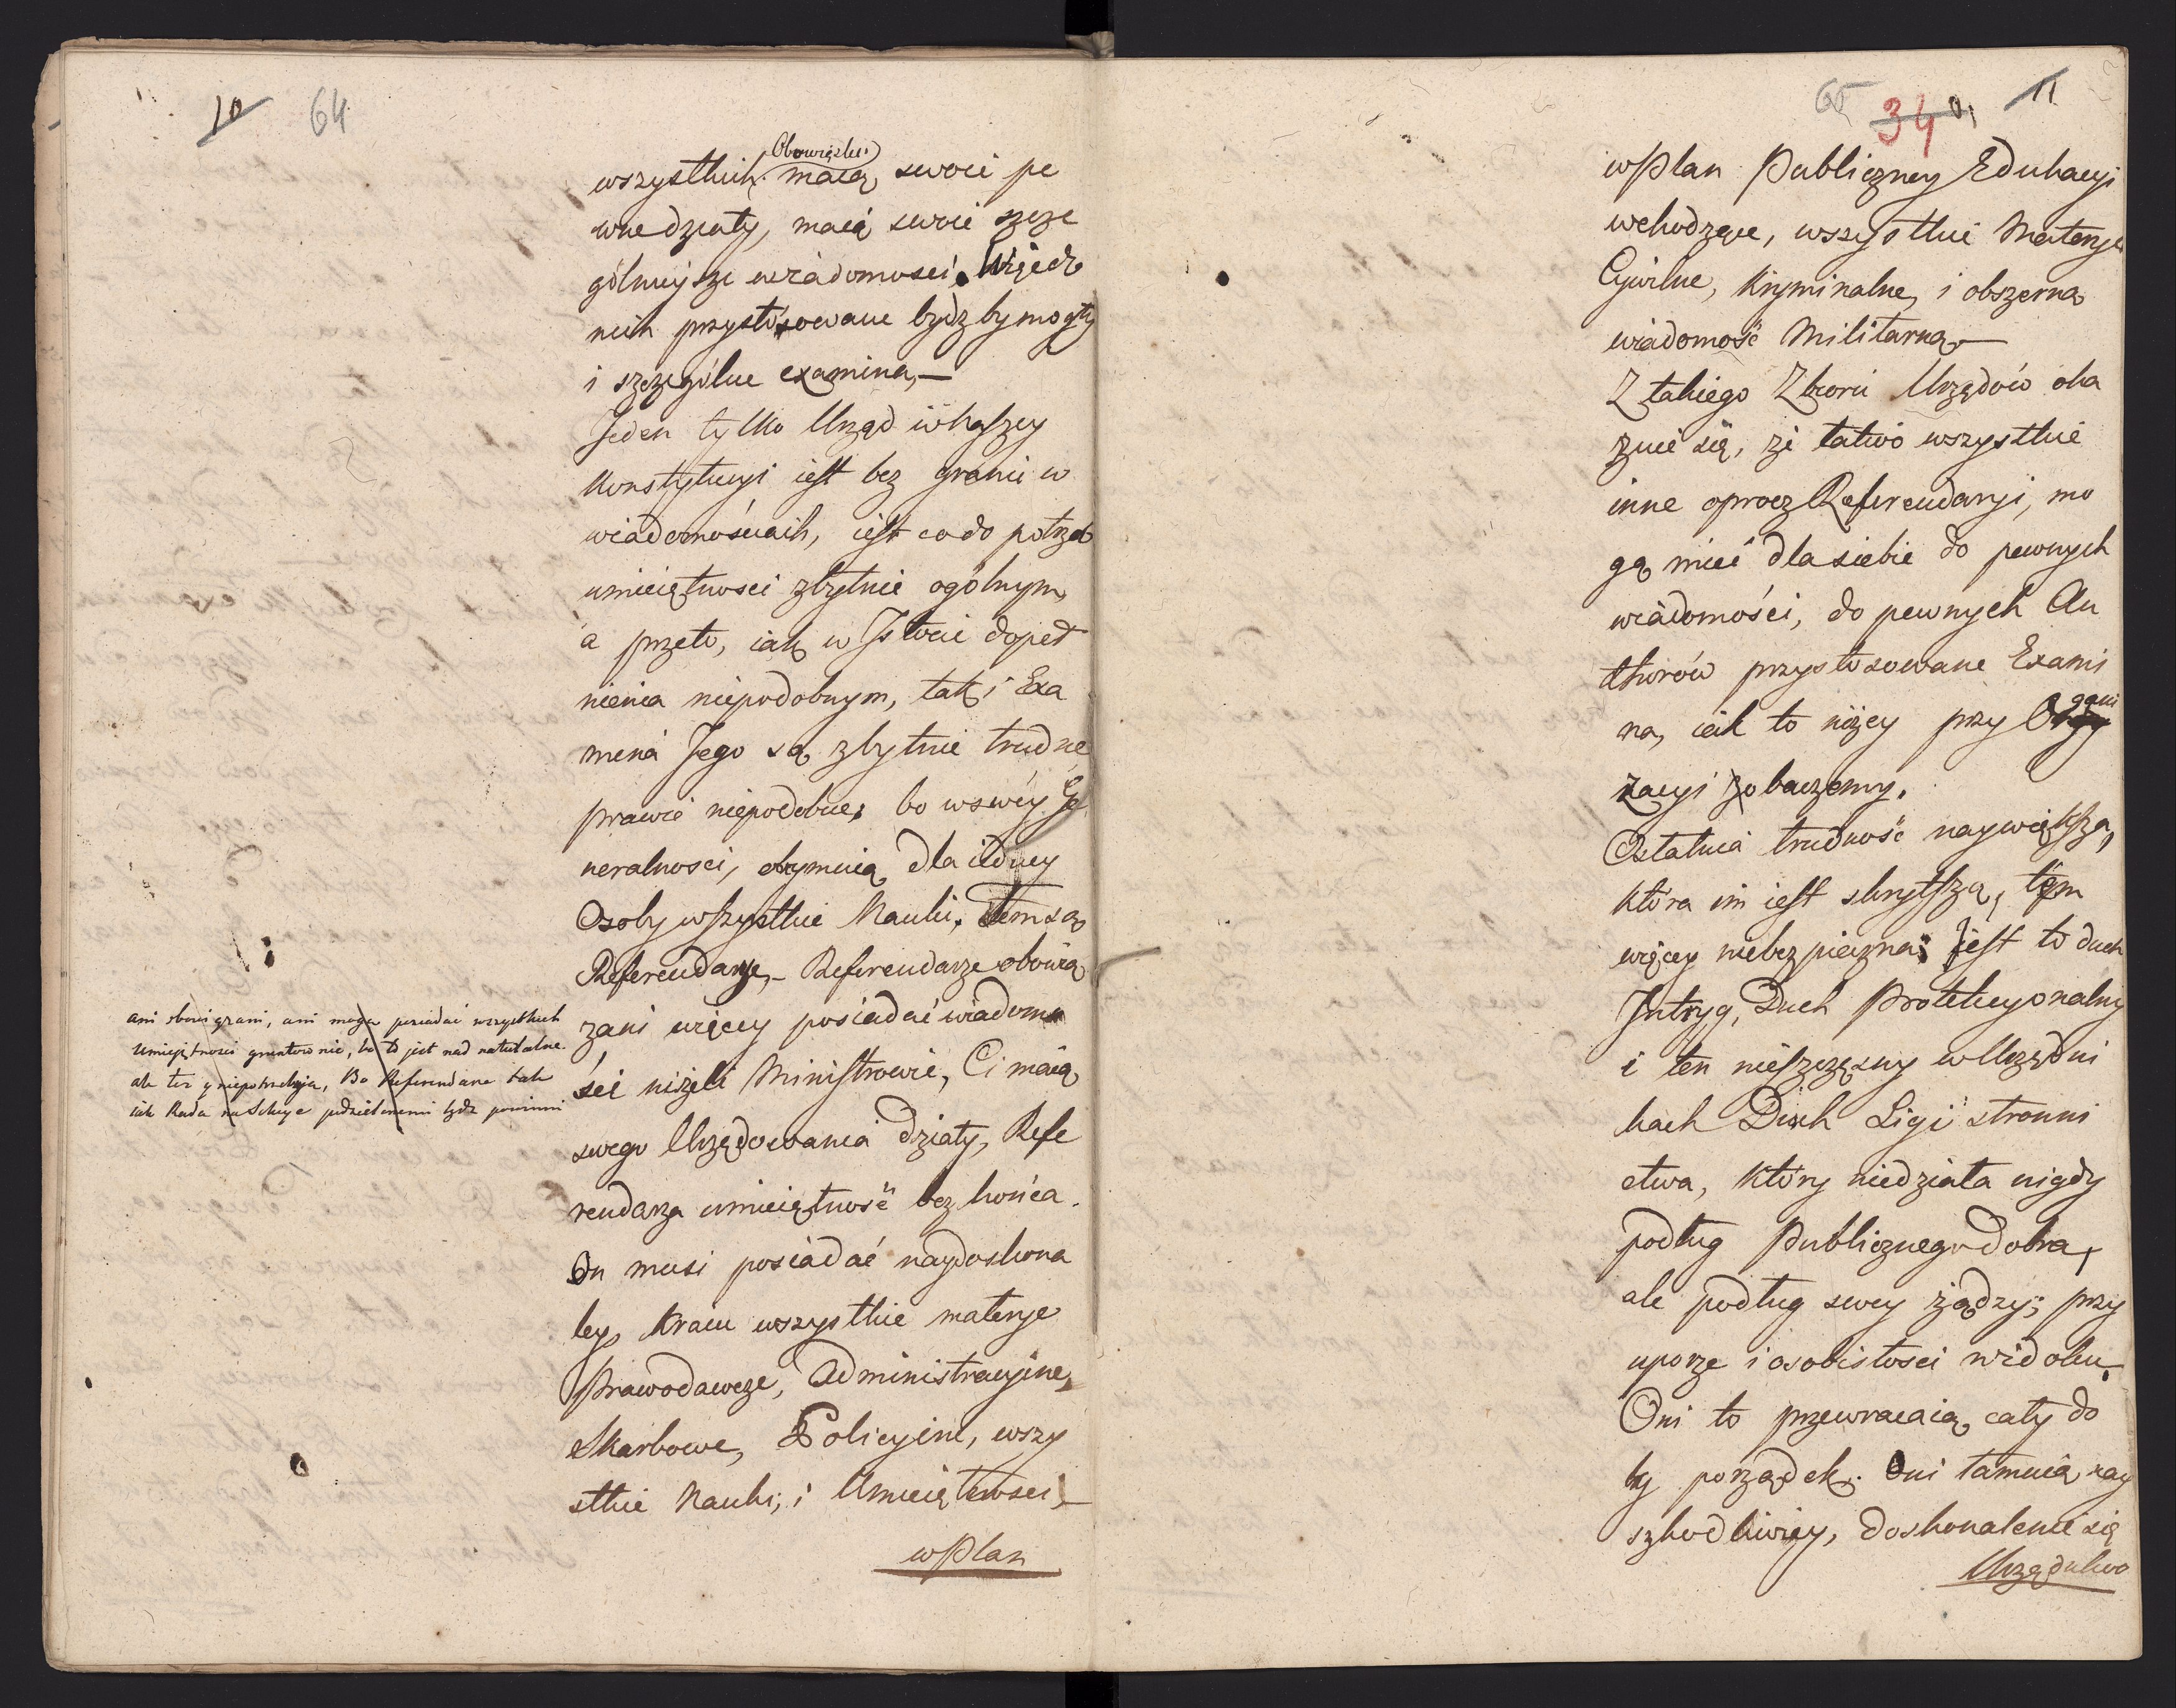 10 64
Obowiązki
wszystkich maią swoie pe
wne działy, maią swoie szcze
gólnieysze wiadomosci. Więc do
nich przystosowane bydz by mogły
i szczególne examina, —
Jeden tylko Urząd w naszey
Konstytucyi iest bez granic w
wiadomościach, iest co do potrzeb
umieiętnosci zbytnie ogólnym,
a przeto, iak w Istocie dopeł
nienia niepodobnym, tak i Exa
mena Jego są zbytnie trudne
prawie niepodobne, bo w swey Ge
neralnosci, obeymuią dla iedney
Osoby wszystkie Nauki. Temi są
Referendarze, – Referendarze obowią
zani więcey posiadać wiadomo
ści niżeli Ministrowie, Ci maią
swego Urzędowania działy, Refe
rendarza umieiętność bez końca.
On musi posiadać naydoskona
ley, Kraiu wszystkie materye
Prawodawcze, Administracyine,
Skarbowe, Policyine, wszy
stkie Nauki, i Umieiętnosci, –
w Plan
ani obowiązani, ani mogą posiadać wszystkich
umieiętnosci gruntownie, bo to jest nad naturalne.
ale też y niepotrzebuja, Bo Referendarze tak
iak Rada na Sekcye podzielonemi bydz powinni
65 34 11
w Plan Publiczney Edukacyi
wchodzące, wszystkie Materye
Cywilne, Kryminalne, i obszerną
wiadomość Militarną. —
Z takiego Zbioru Urzędów oka
zuie się, że łatwo wszystkie
inne oprocz Referendaryi, mo
gą mieć dla siebie do pewnych
wiadomości, do pewnych Au
thorów przystosowane Exami
na, iak to niżey przy Orgagani
zacyi zobaczemy.
Ostatnia trudność naywiększa,
która im iest skrytsza, tym
więcey niebezpieczna; iest to duch
Intryg, Duch Protekcyonalny
i ten nieszczęsny w Urzędni
kach Duch Ligi stronni
ctwa, który niedziała nigdy
podług Publicznego dobra,
ale podług swey żądzy; przy
uporze i osobistosci widoku.
Oni to przewracaią cały do
bry porządek. Oni tamuią nay
szkodliwiey, doskonalenie się
Urzędnikwo